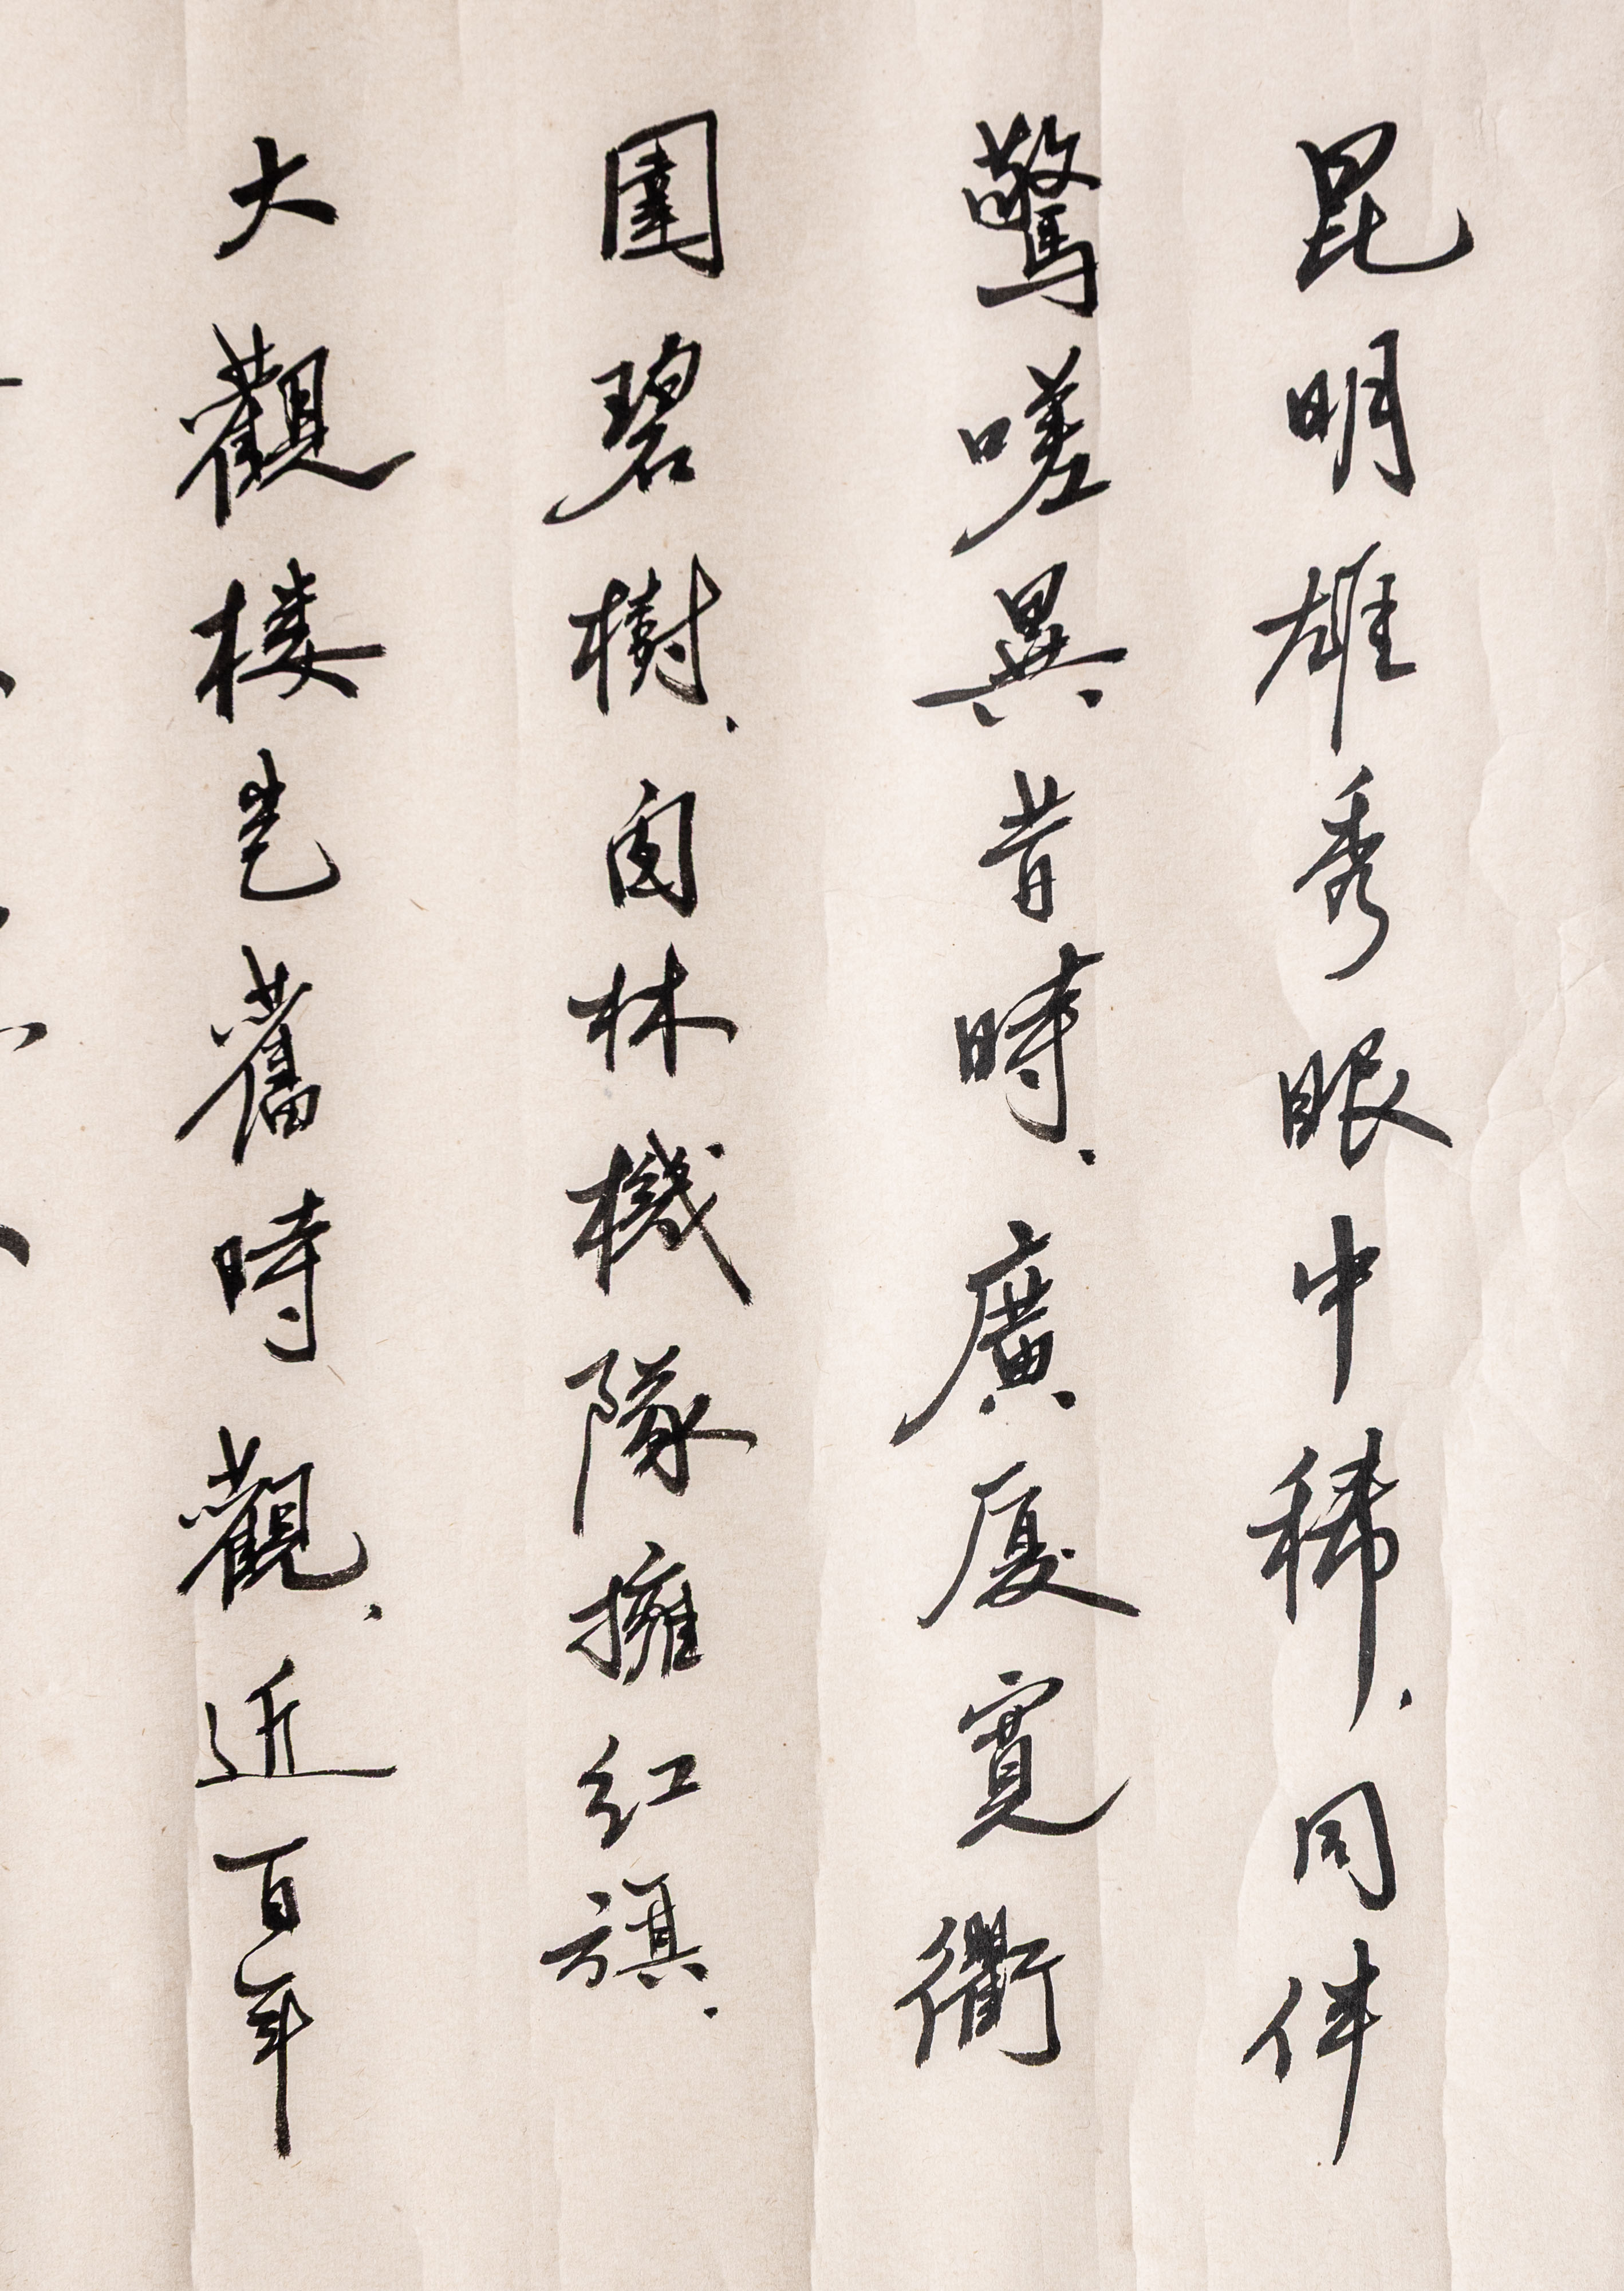 昆明雄秀眼中稀.同伴
驚嗟異昔時.廣厦寬衢
圍碧樹.囱林機隊擁红旗.
大觀楼岂舊時觀.近百年